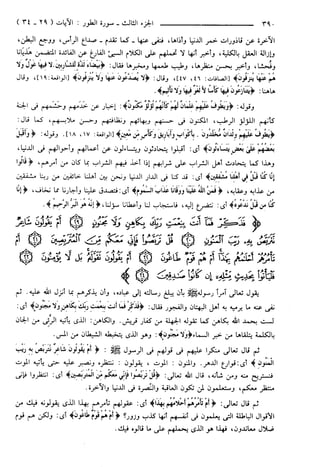 ٣٩٠ الجزء الثالث - سورة الطور: الآيات (٢٩ - ٣٤)
الآخرة عن قاذورات خمر الدنيا وأذاها، فنفى عنها - كما تقدم - صداع الرأس، ووجع البطن،
وإزالة العقل بالكلية، وأخبر أنها لا تحملهم على الكلام السيئ الفارغ عن الفائدة المتضمن هذيانًا
وفحشا، وأخبر بحسن منظرها، وطيب طعمها ومخبرها فقال: ﴿بَيْضَاءَ لَذَّةٍ لِلشَّارِبِينَ. لا فِيهَا غَوْلٌ وَلا
هُمْ عَنْهَا يُنْزَفُونَ﴾ [الصافات: ٤٦، ٤٧]، وقال: ﴿لا يُصَدَّعُونَ عَنْهَا وَلا يُنْزِفُونَ﴾ [الواقعة: ١٩]، وقال
هاهنا: ﴿يَتَنَازَعُونَ فِيهَا كَأْسًا لا لَغْوٌ فِيهَا وَلا تَأْثِيمٌ﴾.
وقوله: ﴿وَيَطُوفُ عَلَيْهِمْ غِلْمَانٌ لَهُمْ كَأَنَّهُمْ لُؤْلُؤٌ مَكْنُونٌ﴾: إخبار عن خدمهم وحشمهم في الجنة
كأنهم اللؤلؤ الرطب، المكنون في حسنهم وبهائهم ونظافتهم وحسن ملابسهم، كما قال:
﴿يَطُوفُ عَلَيْهِمْ وِلْدَانٌ مُخَلَّدُونَ. بِأَكْوَابٍ وَأَبَارِيقَ وَكَأْسٍ مِنْ مَعِينٍ﴾ [الواقعة: ١٧، ١٨]. وقوله: ﴿وَأَقْبَلَ
بَعْضُهُمْ عَلَى بَعْضٍ يَتَسَاءَلُونَ﴾ أي: أقبلوا يتحادثون ويتساءلون عن أعمالهم وأحوالهم في الدنيا،
وهذا كما يتحادث أهل الشراب على شرابهم إذا أخذ فيهم الشراب بما كان من أمرهم، ﴿قَالُوا
إِنَّا كُنَّا قَبْلُ فِي أَهْلِنَا مُشْفِقِينَ﴾ أي: قد كنا في الدار الدنيا ونحن بين أهلنا خائفين من ربنا مشفقين
من عذابه وعقابه، ﴿فَمَنَّ اللَّهُ عَلَيْنَا وَوَقَانَا عَذَابَ السَّمُومِ﴾ أي: فتصدق علينا وأجارنا مما نخاف، ﴿إِنَّا
كُنَّا مِنْ قَبْلُ نَدْعُوهُ﴾ أي: نتضرع إليه، فاستجاب لنا وأعطانا سؤلنا، ﴿إِنَّهُ هُوَ الْبَرُّ الرَّحِيمُ﴾.
﴿فَذَكِّرْ فَمَا أَنْتَ بِنِعْمَتِ رَبِّكَ بِكَاهِنٍ وَلَا مَجْنُونٍ أَمْ يَقُولُونَ شَاعِرٌ
نَتَرَبَّصُ بِهِ رَيْبَ الْمَنُونِ قُلْ تَرَبَّصُوا فَإِنِّي مَعَكُمْ مِنَ الْمُتَرَبِّصِينَ
أَمْ تَأْمُرُهُمْ أَحْلَامُهُمْ بِهَذَا أَمْ هُمْ قَوْمٌ طَاغُونَ أَمْ يَقُولُونَ تَقَوَّلَهُ بَلْ لَا يُؤْمِنُونَ
فَلْيَأْتُوا بِحَدِيثٍ مِثْلِهِ إِنْ كَانُوا صَادِقِينَ﴾
يقول تعالى آمراً رسوله ﷺ بأن يبلغ رسالته إلى عباده، وأن يذكرهم بما أنزل الله عليه. ثم
نفى عنه ما يرميه به أهل البهتان والفجور فقال: ﴿فَذَكِّرْ فَمَا أَنْتَ بِنِعْمَتِ رَبِّكَ بِكَاهِنٍ وَلا مَجْنُونٍ﴾ أي:
لست بحمد الله بكاهن كما تقوله الجهلة من كفار قريش. والكاهن: الذي يأتيه الرئي من الجان
بالكلمة يتلقاها من خبر السماء ﴿وَلا مَجْنُونٍ﴾: وهو الذي يتخبطه الشيطان من المس.
ثم قال تعالى منكرا عليهم في قولهم في الرسول ﷺ: ﴿أَمْ يَقُولُونَ شَاعِرٌ نَتَرَبَّصُ بِهِ رَيْبَ
الْمَنُونِ﴾ أي: قوارع الدهر. والمنون: الموت، يقولون: ننتظره ونصبر عليه حتى يأتيه الموت
فنستريح منه ومن شأنه، قال الله تعالى: ﴿قُلْ تَرَبَّصُوا فَإِنِّي مَعَكُمْ مِنَ الْمُتَرَبِّصِينَ﴾ أي: انتظروا فإني
منتظر معكم، وستعلمون لمن تكون العاقبة والنصرة في الدنيا والآخرة.
ثم قال تعالى: ﴿أَمْ تَأْمُرُهُمْ أَحْلَامُهُمْ بِهَذَا﴾ أي: عقولهم تأمرهم بهذا الذي يقولونه فيك من
الأقوال الباطلة التي يعلمون في أنفسهم أنها كذب وزور؟ ﴿أَمْ هُمْ قَوْمٌ طَاغُونَ﴾ أي: ولكن هم قوم
ضلال معاندون، فهذا هو الذي يحملهم على ما قالوه فيك.